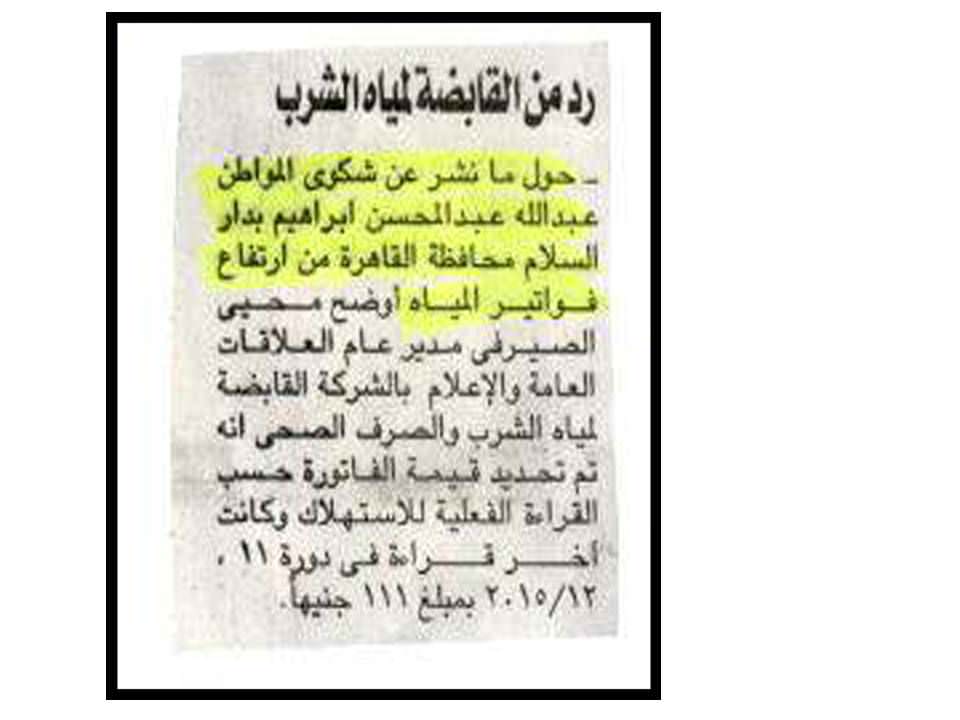 رد من القابضة لمياه الشرب
ـ حول ما نشر عن شكوى المواطن
عبدالله عبدالمحسن ابراهيم بدار
السلام محافظة القاهرة من ارتفاع
فواتير المياه أوضح محيى
الصيرفى مدير عام العلاقات
العامة والإعلام بالشركة القابضة
لمياه الشرب والصرف الصحى انه
تم تحديد قيمة الفاتورة حسب
القراءة الفعلية للاستهلاك وكانت
آخر قراءة فى دورة ١١ ،
٢٠١٥/١٢ بمبلغ ١١١ جنيهاً.